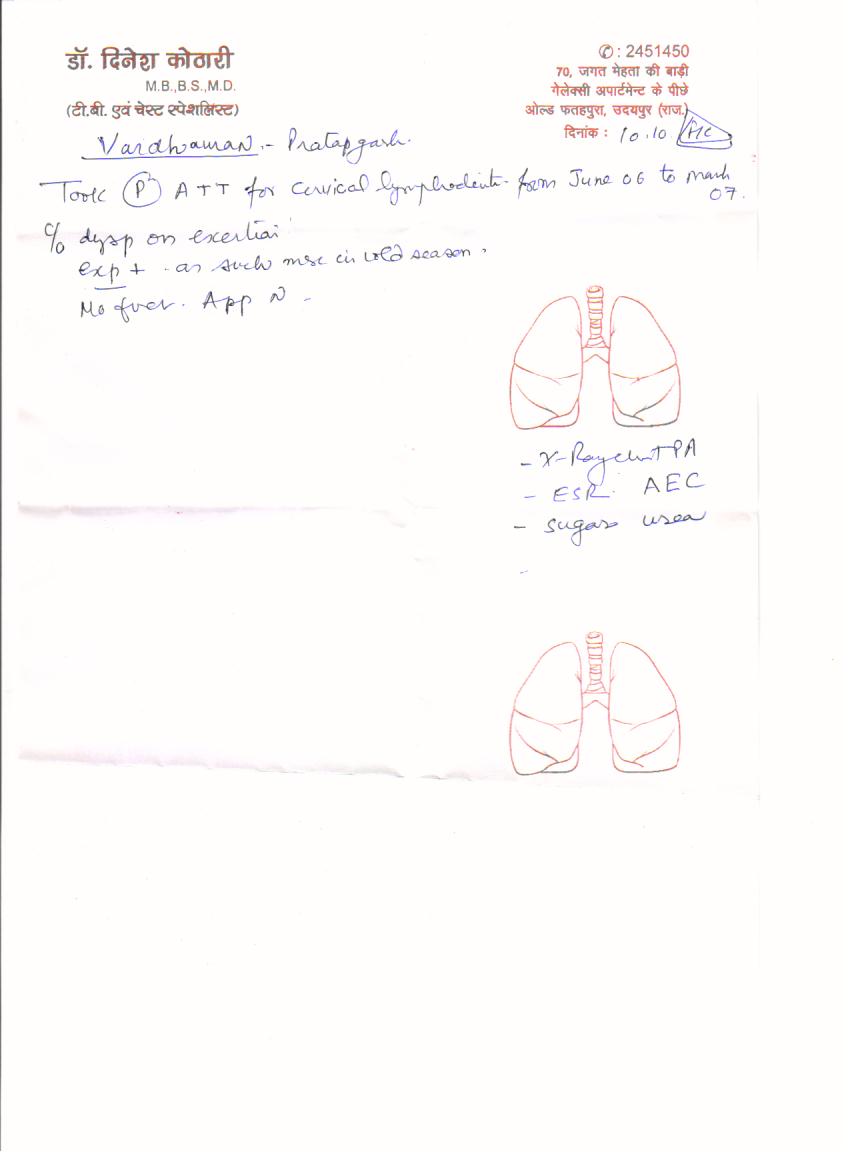 डॉ. दिनेश कोठारी
M.B.,B.S.,M.D.
(टी.बी. एवं चेस्ट स्पेशलिस्ट)
✆ : 2451450
70, जगत मेहता की बाड़ी
गेलेक्सी अपार्टमेन्ट के पीछे
ओल्ड फतहपुरा, उदयपुर (राज.)
दिनांक : 10.10
Vardhaman - Pratapgarh.
Took P A T T for Cervical lymphadenitis from June 06 to March 07.
c/o dysp on exertion
exp + . as such more in cold season .
No fever . App N -
- X-Ray chest PA
- ESR . AEC
- sugar urea
-